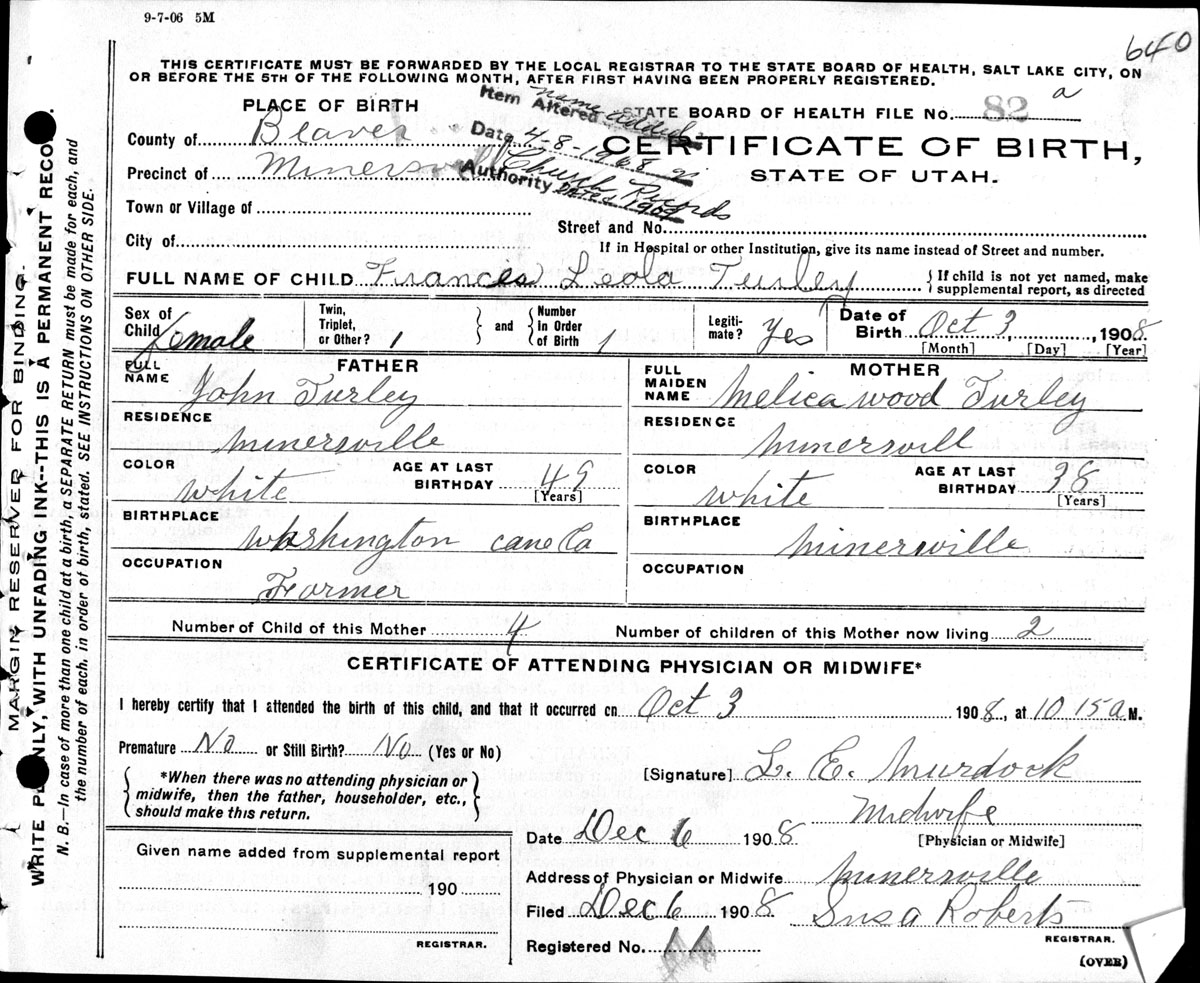 9-7-06 5M
640
THIS CERTIFICATE MUST BE FORWARDED BY THE LOCAL REGISTRAR TO THE STATE BOARD OF HEALTH, SALT LAKE CITY, ON
OR BEFORE THE 5TH OF THE FOLLOWING MONTH, AFTER FIRST HAVING BEEN PROPERLY REGISTERED.
PLACE OF BIRTH
STATE BOARD OF HEALTH FILE NO. 82 a
Item Altered name added
Date 4-8-1968
Authority Church Records
DATED 1909
County of Beaver
CERTIFICATE OF BIRTH,
STATE OF UTAH.
Precinct of Minersville
Town or Village of
Street and No.
City of
If in Hospital or other Institution, give its name instead of Street and number.
FULL NAME OF CHILD Frances Leola Turley
{If child is not yet named, make
supplemental report, as directed
Sex of
Child female
Twin,
Triplet,
or Other? 1
} and {
Number
In Order
of Birth 1
Legiti-
mate? Yes
Date of
Birth Oct 3, 1908.
[Month] [Day] [Year]
FATHER
FULL
NAME John Turley
RESIDENCE
Minersville
COLOR
White
AGE AT LAST
BIRTHDAY 49
[Years]
BIRTHPLACE
Washington cane Co
OCCUPATION
Farmer
MOTHER
FULL
MAIDEN
NAME Melica wood Turley
RESIDENCE
Minersvill
COLOR
White
AGE AT LAST
BIRTHDAY 38
[Years]
BIRTHPLACE
Minersville
OCCUPATION
Number of Child of this Mother 4 Number of children of this Mother now living 2
CERTIFICATE OF ATTENDING PHYSICIAN OR MIDWIFE*
I hereby certify that I attended the birth of this child, and that it occurred on Oct 3 1908, at 10 15 a M.
Premature No or Still Birth? No (Yes or No)
{*When there was no attending physician or
midwife, then the father, householder, etc.,
should make this return.}
[Signature] L. E. Murdock
Midwife
[Physician or Midwife]
Date Dec 6 1908
Given name added from supplemental report
190
REGISTRAR.
Address of Physician or Midwife Minersville
Filed Dec 6 1908 Susa Roberts
REGISTRAR.
Registered No. 11
(OVER)
MARGIN RESERVER FOR BINDING.
WRITE PLAINLY, WITH UNFADING INK--THIS IS A PERMANENT RECORD.
N. B.—In case of more than one child at a birth, a SEPARATE RETURN must be made for each, and
the number of each, in order of birth, stated. SEE INSTRUCTIONS ON OTHER SIDE.